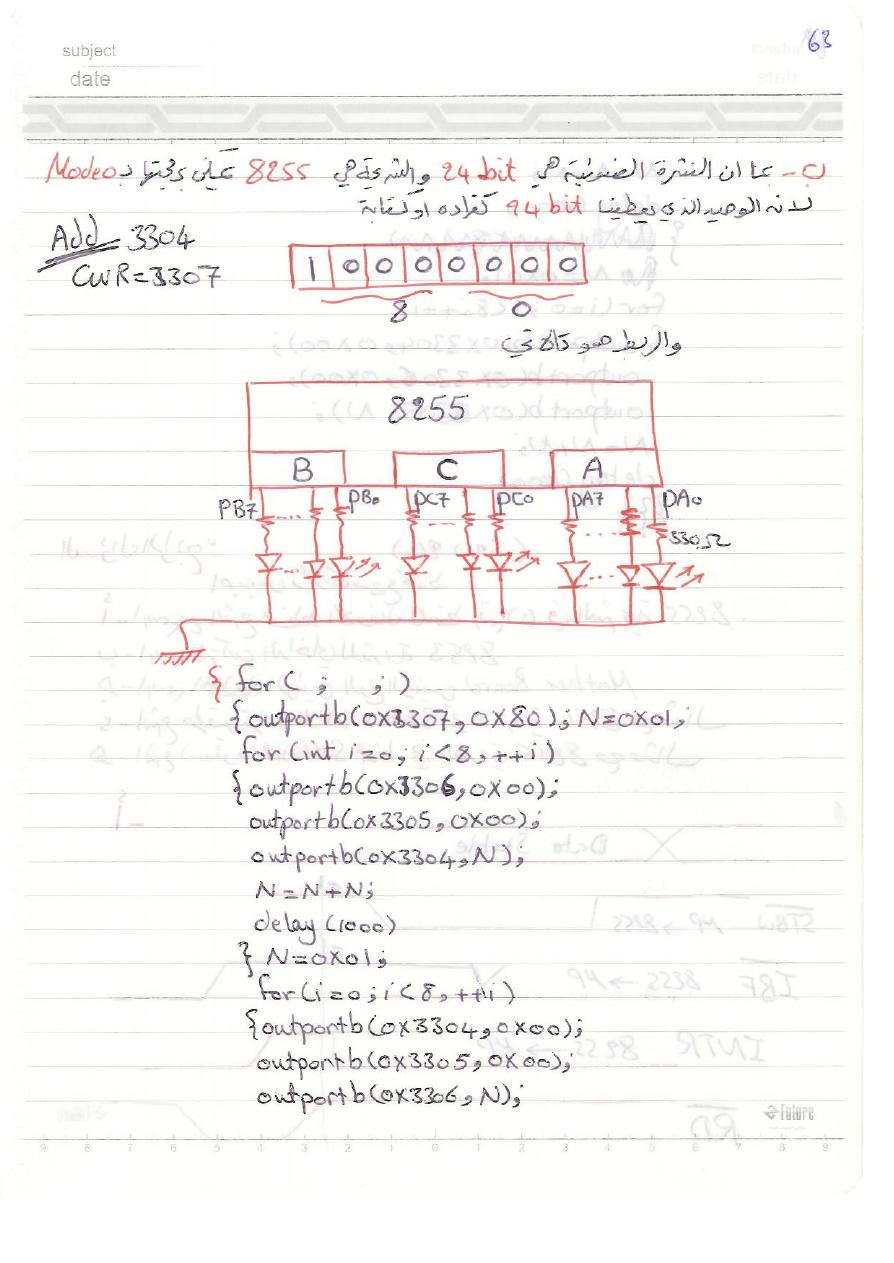 63
subject
date
ب - بما ان النشرة الضوئية هي 24 bit والشريحة هي 8255 برمجتها بـ Mode0
لانه الوحيد الذي يعطينا 24 bit كقراءه او كتابة
Add 3304
CWR=3307
1 0 0 0 0 0 0 0
8 0
والربط هو كالاتي
8255
B C A
PB7 PB0 PC7 PC0 PA7 PA0
330Ω
{ for ( ; ; )
{ outportb(0x3307, 0x80); N=0x01;
for (int i=0; i<8; ++i)
{ outportb(0x3306, 0x00);
outportb(0x3305, 0x00);
outportb(0x3304, N);
N=N+N;
delay (1000)
} N=0x01;
for(i=0; i<8; ++i)
{outportb(0x3304, 0x00);
outportb(0x3305, 0x00);
outportb(0x3306, N);
Future
9 8 7 6 5 4 3 2 1 0 1 2 3 4 5 6 7 8 9